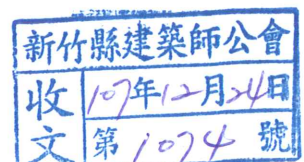 新竹縣建築師公會
收文
107年12月24日
第1074號